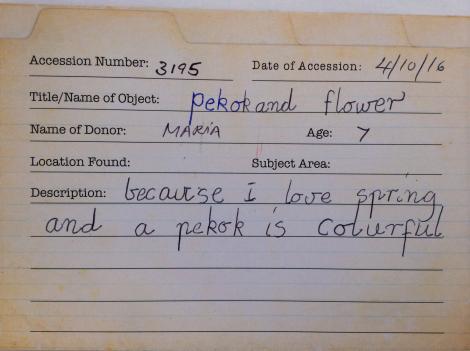 Accession Number: 3195 Date of Accession: 4/10/16
Title/Name of Object: pekok and flower
Name of Donor: MARIA Age: 7
Location Found: Subject Area:
Description: because I love spring
and a pekok is colurful